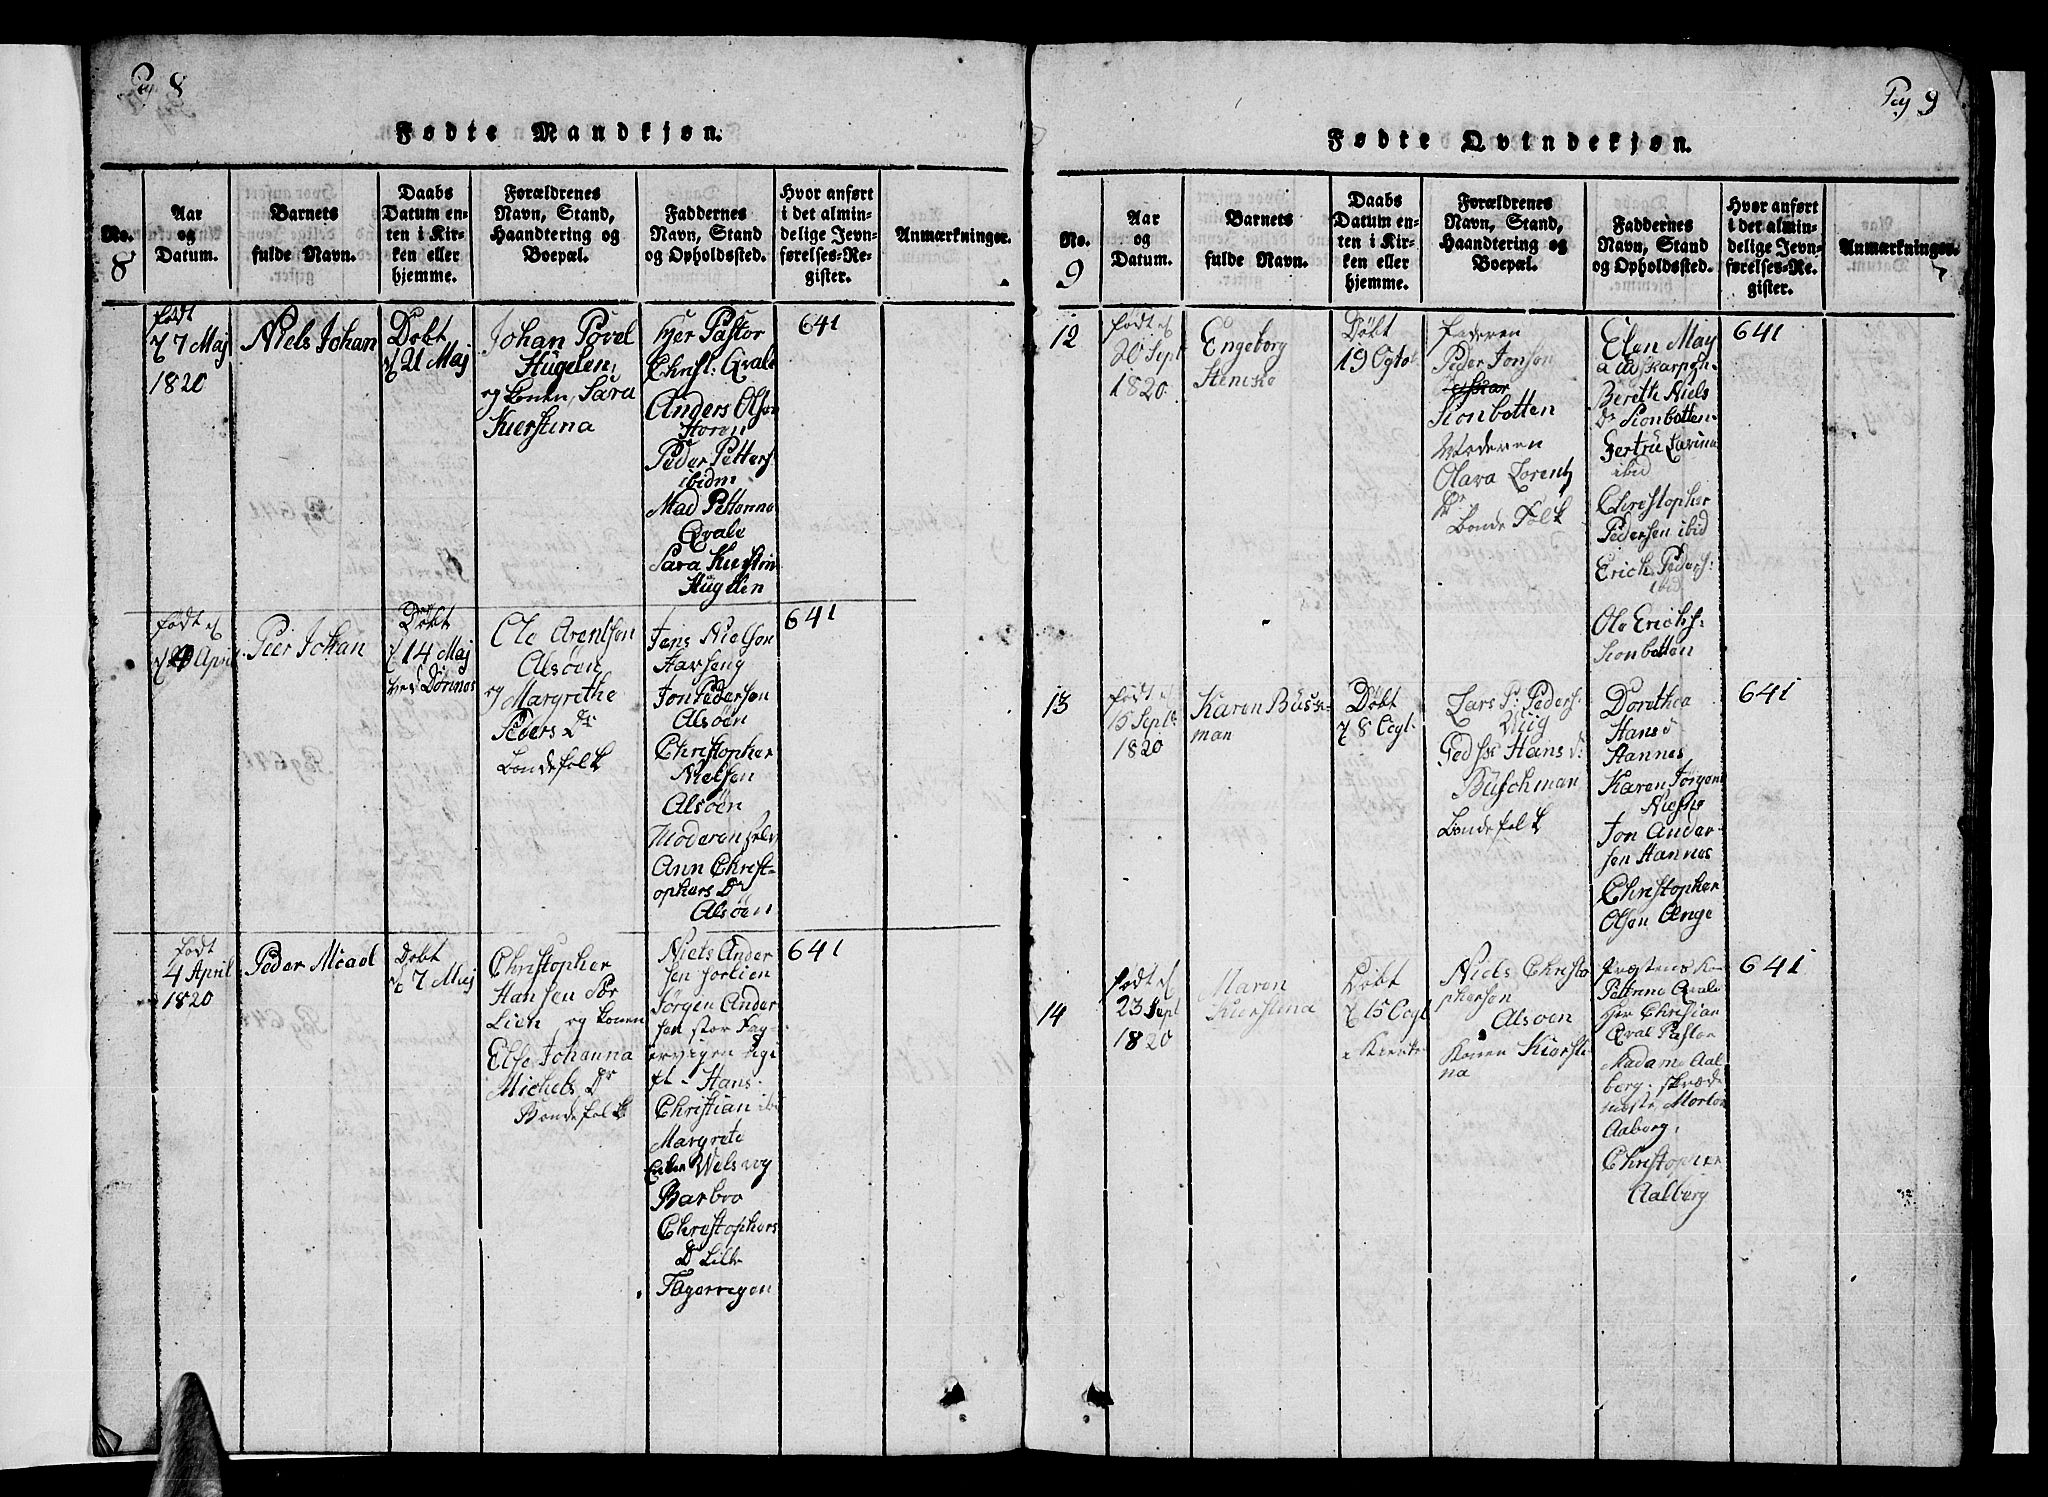 Pag 8
Fødte Mandkjøn.
No.
8
Aar
og
Datum.
Barnets
fulde Navn.
Daabs
Datum en-
ten i Kir-
ken eller
hjemme.
Forældrenes
Navn, Stand,
Haandtering og
Boepæl.
Faddernes
Navn, Stand
og Opholdssted.
Hvor anført
i det almin-
delige Jevn-
førelses-Re-
gister.
Anmærkninger.
født
7 Maj
1820
Niels Johan
Døbt
21 Maj
Johan Povel
Hugelen,
og konen, Sara
Kierstina
Hjer Pastor
Christ: Qvale
Anders Olsen
Horen
Peder Petters
ibidm
Mad Petterine
Qvale
Sara Kirstin
Hugelen
641
født
April
Pier Johan
Døbt
14 Maj
Dønnes
Ole Arentson
Alsøen
og Margrethe
Peders Dr
Bondefolk
Jens Nielson
Harseng
Jon Pederson
Alsøen
Christopher
Nielsen
Alsøen
Moderen selv
Ann Christ-
ophers Dr
Alsøen
641
født
4 April
1820
Peder Micael
Døbt
7 Maj
Christopher
Hansen Sør
Lien og konen
Else Johanna
Michels Dr
Bondefolk
Niels Ander
sen sørlien
Jørgen Ander
sen stor Fag-
ervigen
Hans
Christian
Margrete
Barbro
Christophers
Dr Lille
Fagervigen
641
Pag 9
Fødte Qvindekjøn.
No.
9
Aar
og
Datum.
Barnets
fulde Navn.
Daabs
Datum en-
ten i Kir-
ken eller
hjemme.
Forældrenes
Navn, Stand,
Haandtering og
Boepæl.
Faddernes
Navn, Stand
og Opholdssted.
Hvor anført
i det almin-
delige Jevn-
førelses-Re-
gister.
Anmærkninger.
12
født
20 Sept
1820
Engeborg
Døbt
19 Ogtob
Faderen
Peder Jonson
Sionbotten
Moderen
Olava Lorentz
Dr
Bonde Folk
Elen May
Bereth Niels
Dr Sionbotten
Gertru Lavina
ibid
Christopher
Pedersen ibid
Erich Peders:
ibid
Ole Erichs:
Sionbotten
641
13
født
15 Sept
1820
Karen Bus-
man
Døbt
8 Ogt
Lars P: Peders:
Hans d:
Buschman
Bondefolk
Dorethea
Hans d
Hannes
Karen Jørgens
Jon Ander-
sen Hannes
Christopher
Olsen Ange
641
14
født
23 Sept
1820
Maren
Kierstina
Døbt
15 Ogt
i Kierke
Niels Christo
phersen
Alsoen
Konen Kiersti
na
Præstens Ko
Pettrine Qvale
Hjer Christian
Qval Pastor
Madame Aal
berg
Morten
Aaberg,
Christopher
Aalberg
641